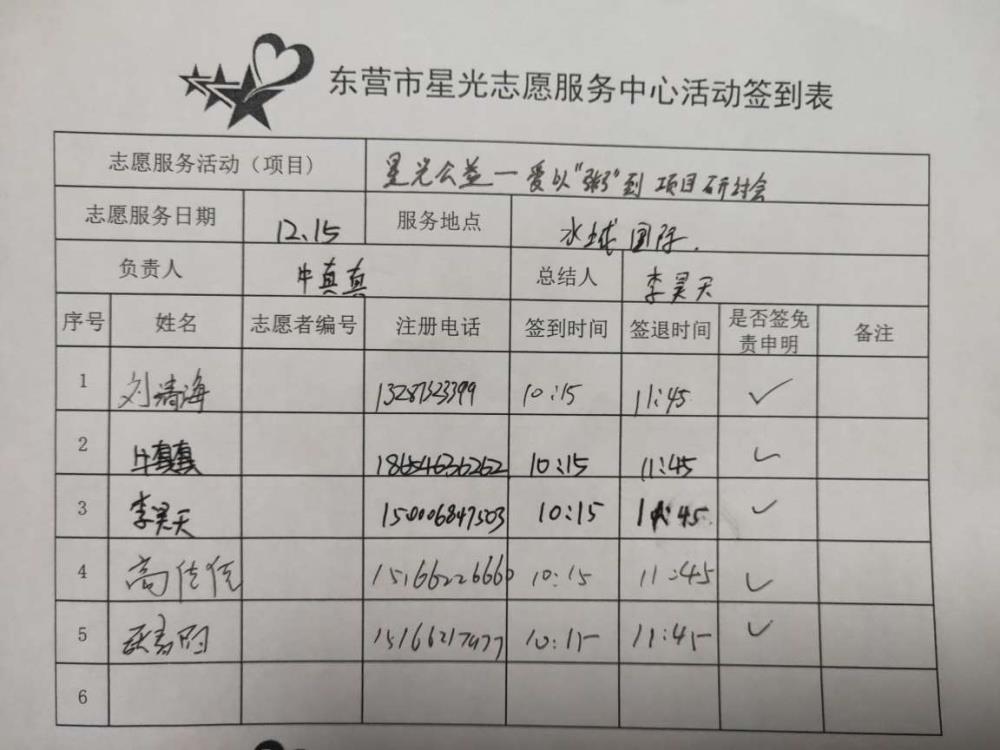 东营市星光志愿服务中心活动签到表
志愿服务活动（项目） 星光公益一爱以"粥"到 项目研讨会
志愿服务日期 12.15 服务地点 水城国际.
负责人 牛真真 总结人 李昊天
序号 姓名 志愿者编号 注册电话 签到时间 签退时间 是否签免责申明 备注
1 刘清海 13287323399 10:15 11:45 ✓
2 牛真真 18654636262 10:15 11:45 ✓
3 李昊天 150006847503 10:15 11:45 ✓
4 高佳佳 15166226660 10:15 11:45 ✓
5 15166217477 10:15 11:45 ✓
6